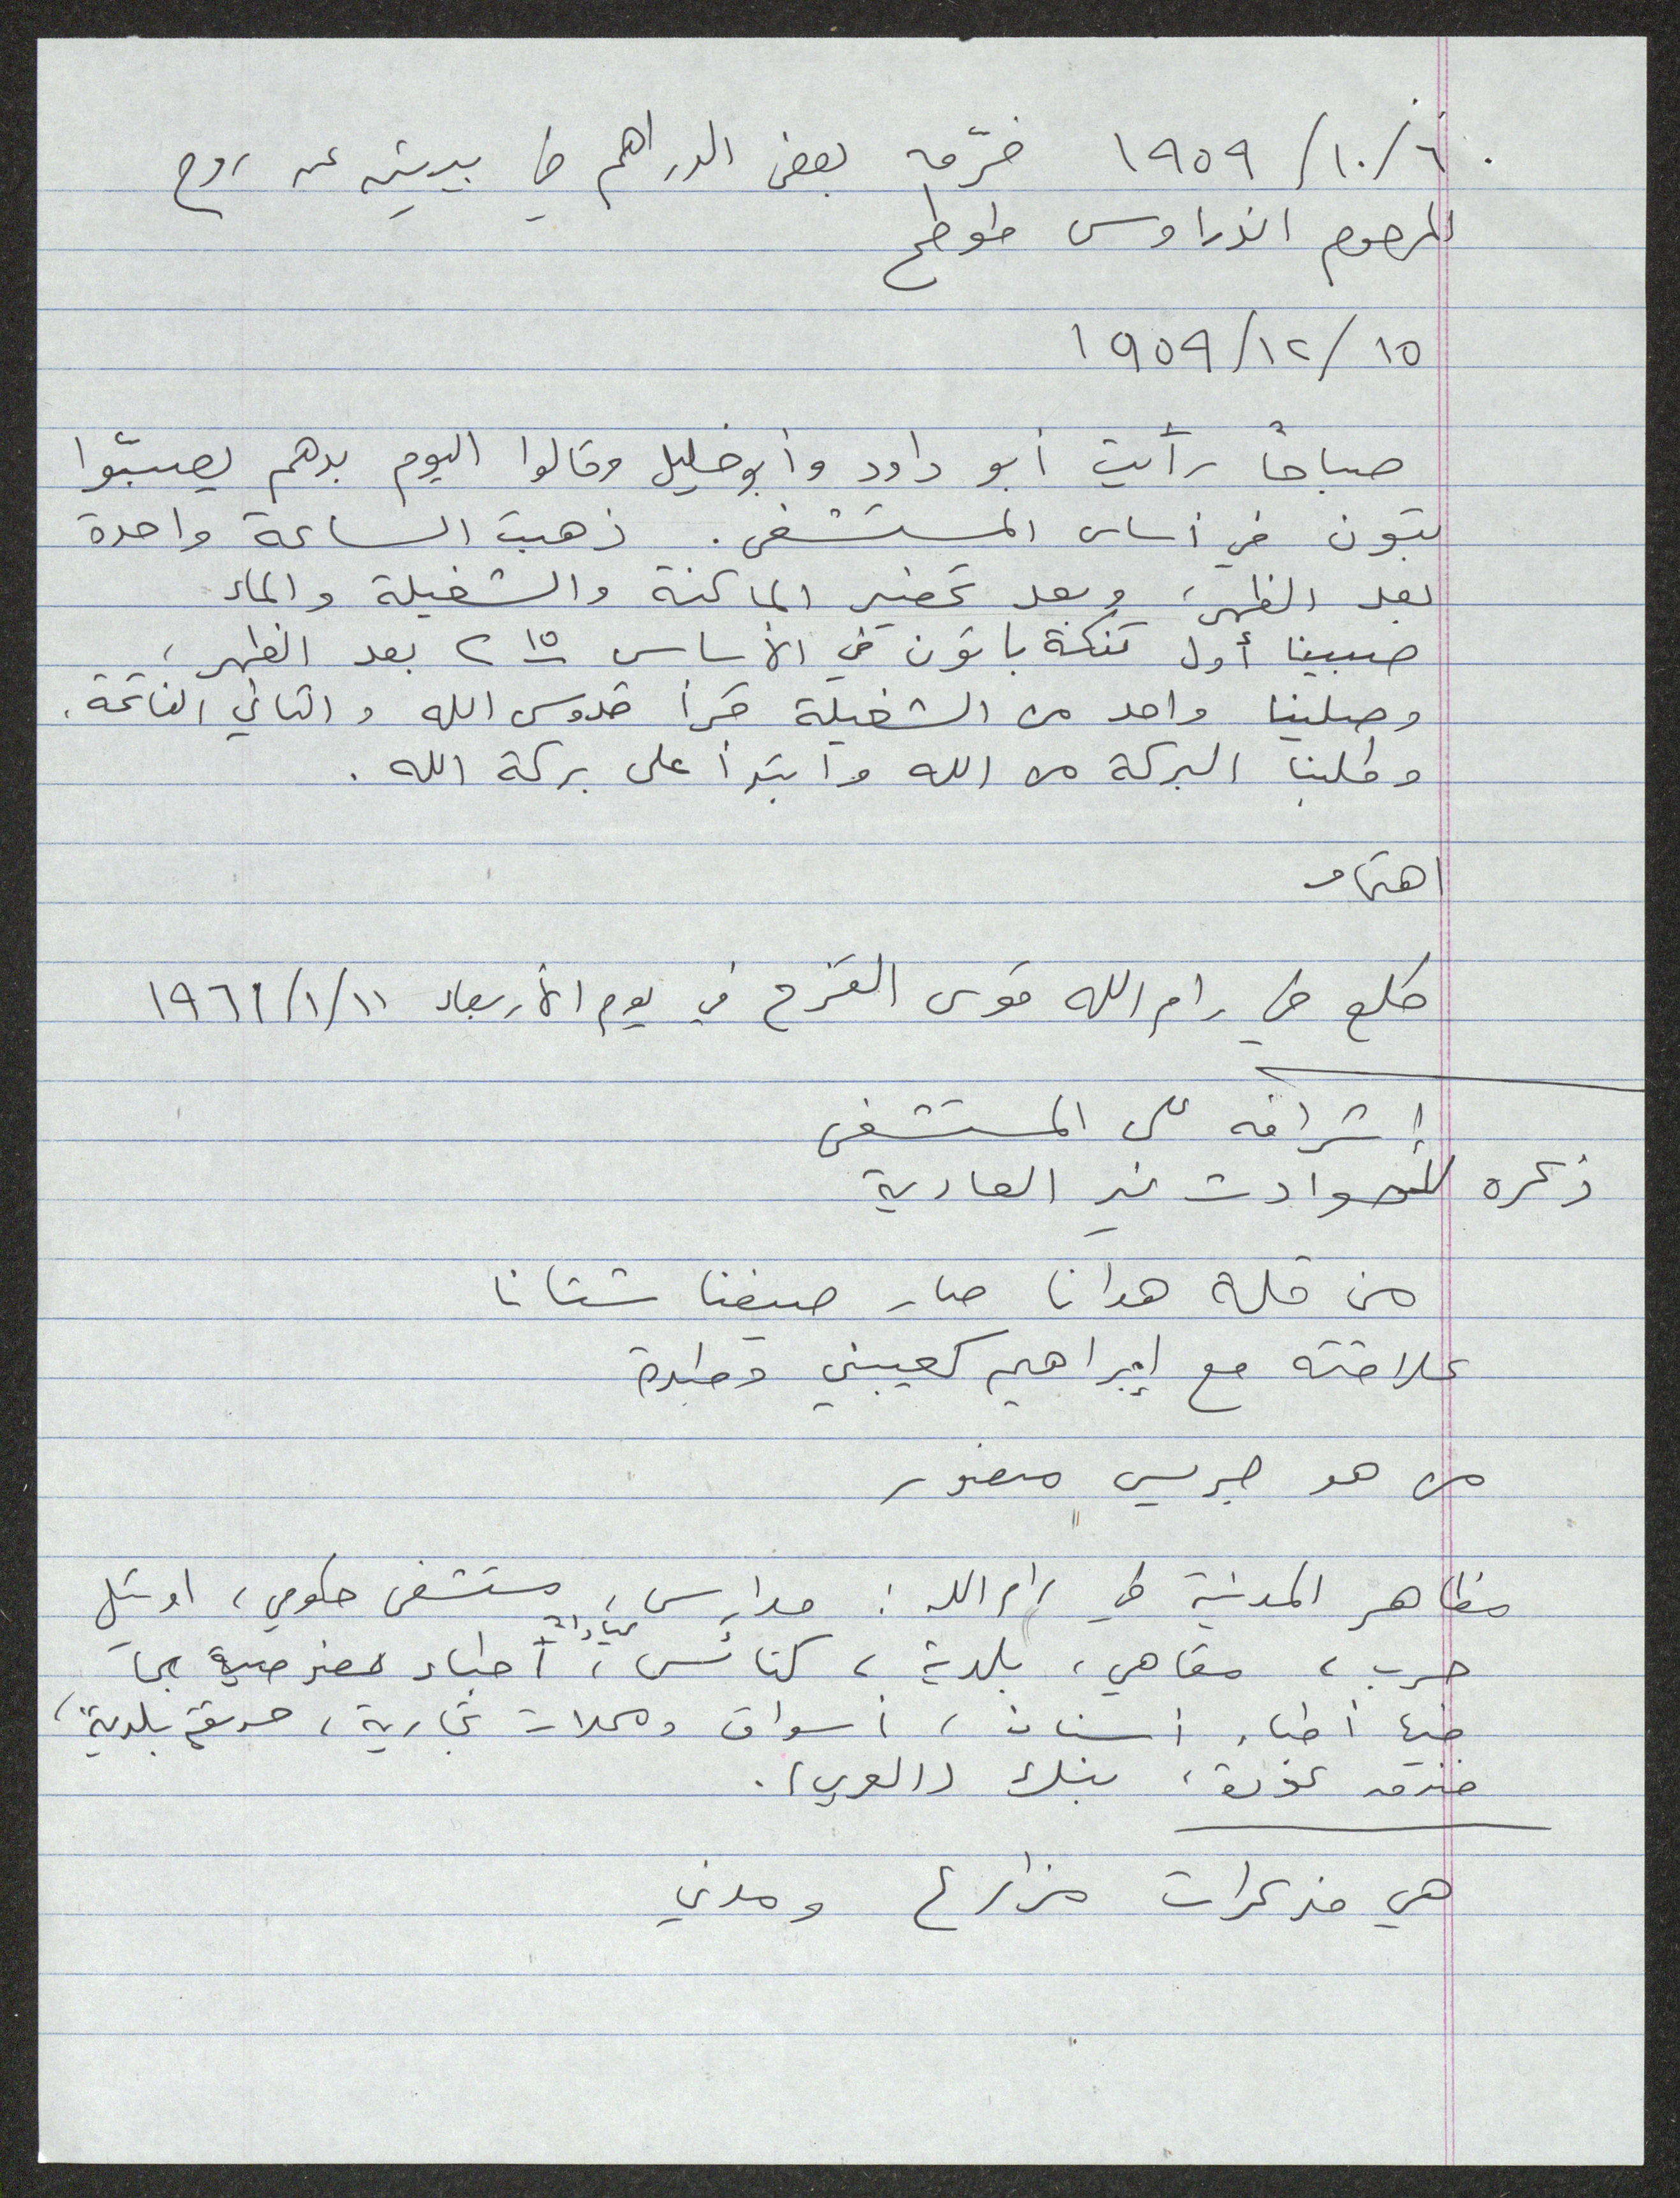 ١٩٥٩/١٠/٦ فرّقه بعض الدراهم في بيرزيت عن روح
المرحوم اندراوس طوطح
١٩٥٩/١٢/١٥
صباحاً رأيت أبو داود وأبو خليل وقالوا اليوم بدهم يصبّوا
بتون في أساس المستشفى. ذهبت الساعة واحدة
بعد الظهر، وبعد تحضير الماكنة والشغيلة والماء
صبينا أول تنكة باتون في الأساس ٢ ١٥ بعد الظهر،
وصلينا واحد من الشغيلة قرأ قدوس الله والثاني الفاتحة.
وطلبنا البركة من الله وابتدأ على بركة الله.
اهتمام
طلع في رام الله قوس القزح في يوم الأربعاء ١٩٦١/١/١١
إشرافه على المستشفى
ذكره للحوادث غير العادية
من قلة هدانا صار صيفنا شتانا
علاقته مع إبراهيم كعيبني وطيدة
من هو جريس منصور
مظاهر المدنية في رام الله: مدارس، مستشفى حكومي، اوتيل
حرب، مقاهي، بلدية، كنائس، عيادات أطباء
فيها أطباء أسنان، أسواق ومحلات تجارية، حديقة بلدية،
فندق عودة، بنك (العربي).
هي مذكرات مزارع ومدني